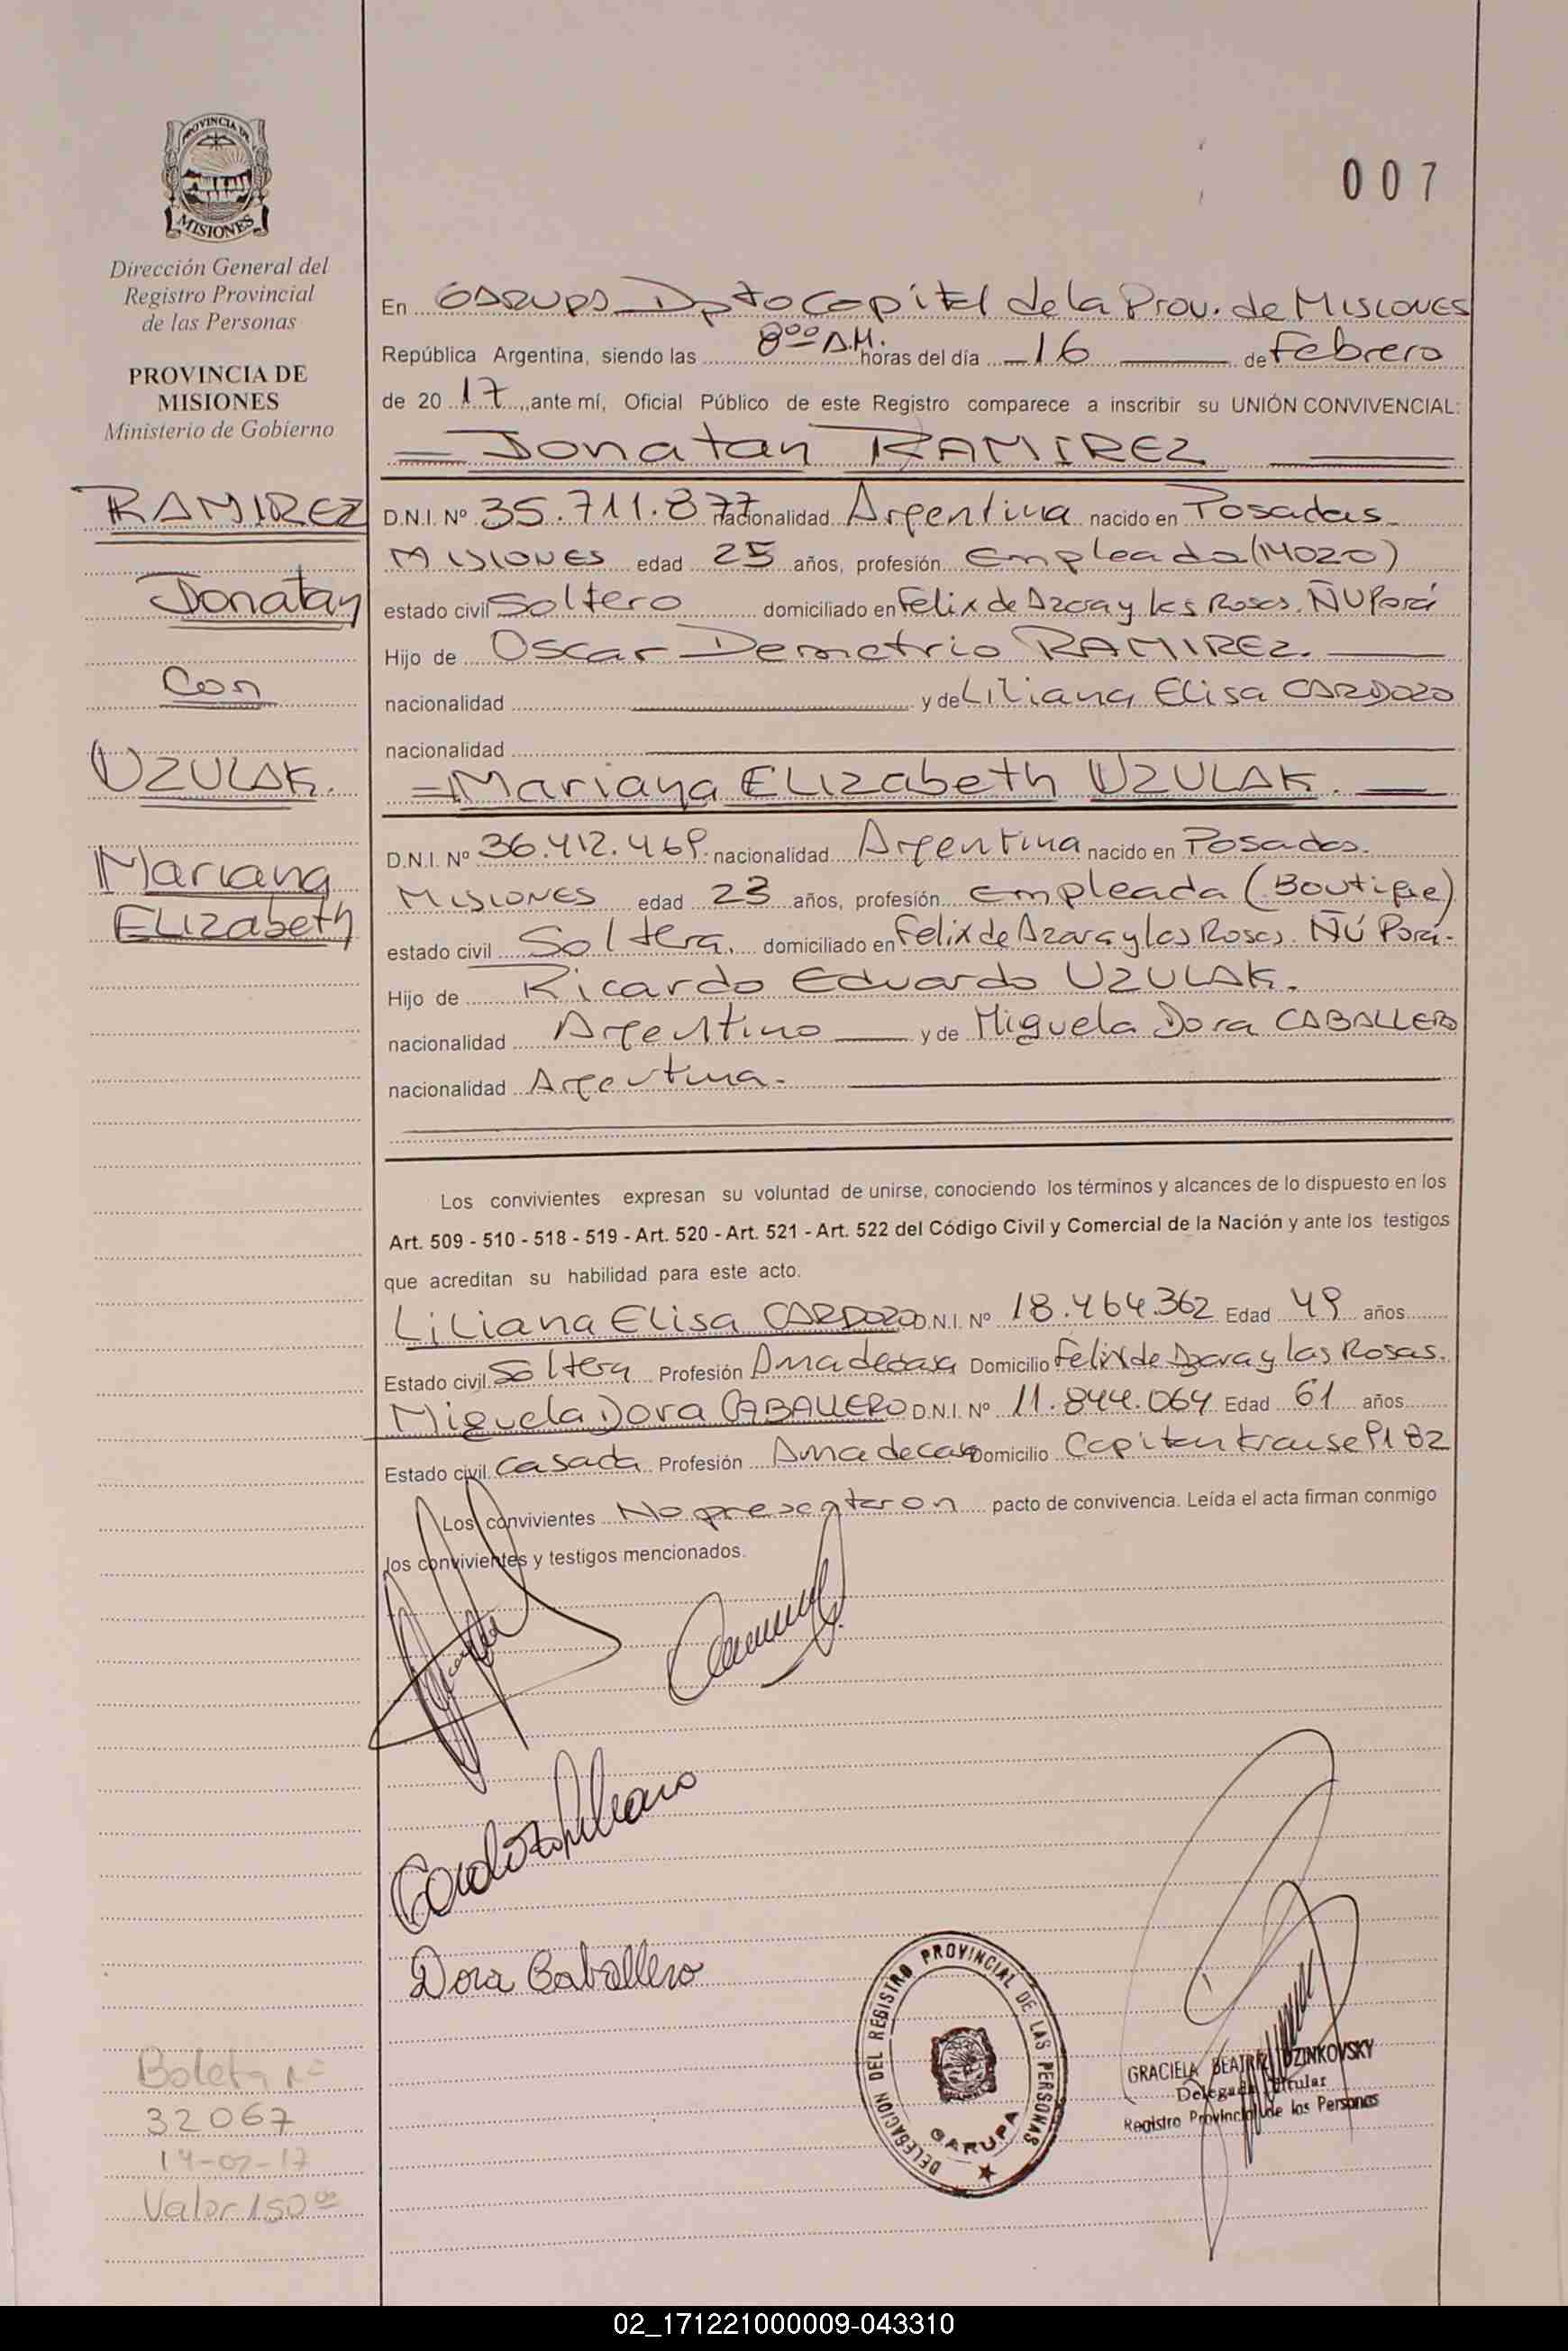 PROVINCIA DE
MISIONES
Dirección General del
Registro Provincial
de las Personas
PROVINCIA DE
MISIONES
Ministerio de Gobierno
RAMIREZ
Jonatan
Con
UZULAK.
Mariana
ELIzabeth
Boleta Nº
32067
14-02-17
Valor 150ºº
007
En GARUPA Dpto Capital de la Prov. de MISIONES
República Argentina, siendo las 8ºº A.M. horas del día 16 de Febrero
de 2017, ante mí, Oficial Público de este Registro comparece a inscribir su UNIÓN CONVIVENCIAL:
Jonatan RAMIREZ
D.N.I. Nº 35.711.877 nacionalidad Argentina nacido en Posadas
MISIONES edad 25 años, profesión Empleado (MOZO)
estado civil Soltero domiciliado en Felix de Azara y las Rosas. ÑU Porá
Hijo de Oscar Demetrio RAMIREZ.
nacionalidad y de Liliana Elisa CARDOZO
nacionalidad
Mariana ELIzabeth UZULAK.
D.N.I. Nº 36.412.469. nacionalidad Argentina nacido en Posadas.
MISIONES edad 23 años, profesión Empleada (Boutique)
estado civil Soltera. domiciliado en Felix de Azara y las Rosas. ÑÚ Porá.
Hijo de Ricardo Eduardo UZULAK.
nacionalidad Argentino y de Miguela Dora CABALLERO
nacionalidad Argentina.
Los convivientes expresan su voluntad de unirse, conociendo los términos y alcances de lo dispuesto en los
Art. 509 - 510 - 518 - 519 - Art. 520 - Art. 521 - Art. 522 del Código Civil y Comercial de la Nación y ante los testigos
que acreditan su habilidad para este acto.
Liliana Elisa CARDOZO D.N.I. Nº 18.464.362 Edad 49 años
Estado civil Soltera Profesión Ama de casa Domicilio Felix de Azara y las Rosas.
Miguela Dora CABALLERO D.N.I. Nº 11.844.064 Edad 61 años
Estado civil Casada Profesión Ama de casa Domicilio Capitan Krause 9182
Los convivientes No presentaron pacto de convivencia. Leída el acta firman conmigo
los convivientes y testigos mencionados.
Cardozo Liliana
Dora Caballero
DELEGACION DEL REGISTRO PROVINCIAL DE LAS PERSONAS
GARUPA
GRACIELA BEATRIZ DZINKOVSKY
Delegada Titular
Registro Provincial de las Personas
02_171221000009-043310